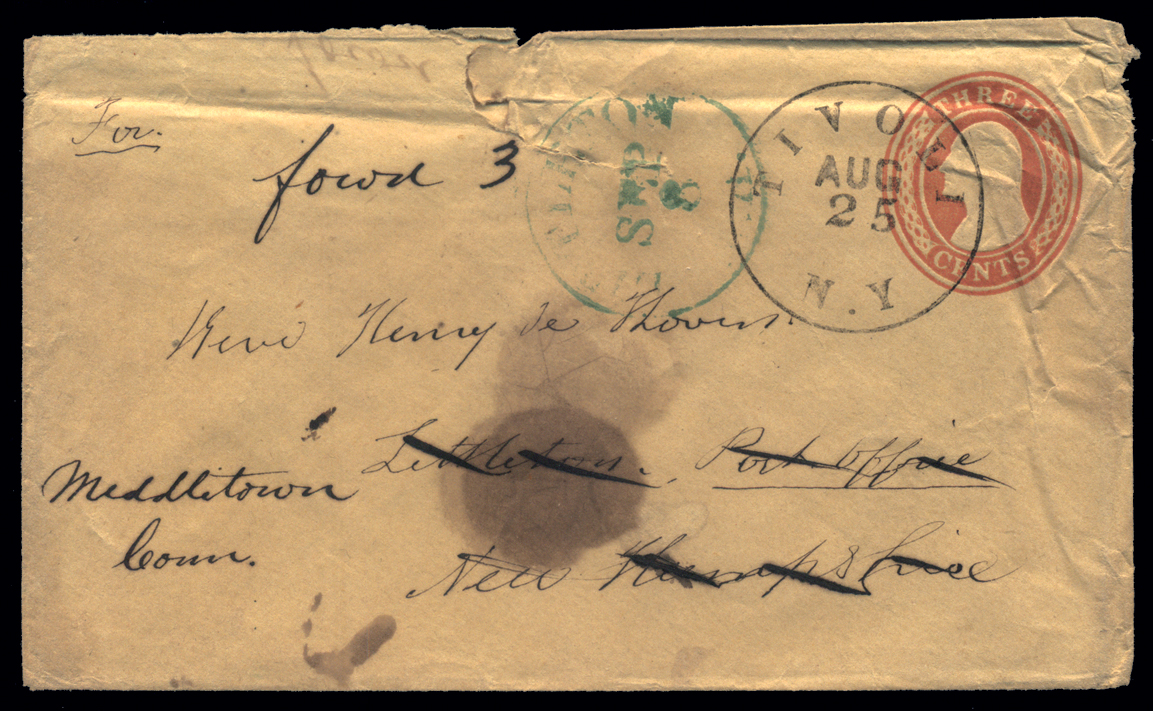 For.
fowd 3
SEP
8
TIVOLI
AUG
25
N.Y
THREE
CENTS
Henry De Koven
Littleton. Post Office
Middletown
Conn.
New Hampshire